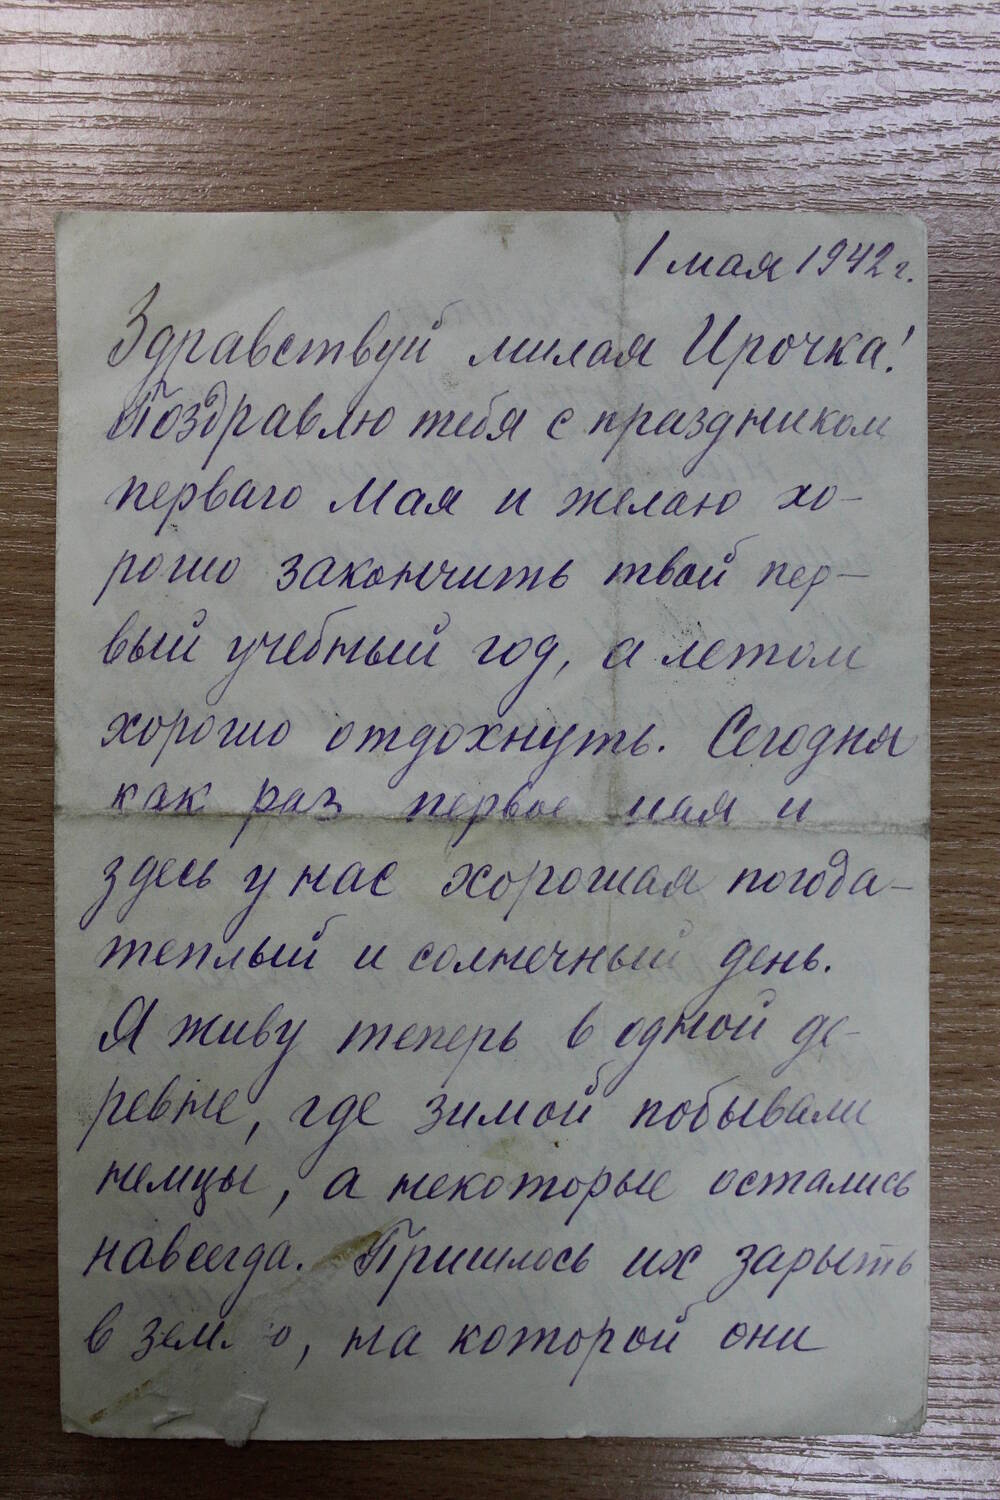 1 мая 1942 г.
Здравствуй милая Ирочка!
Поздравлю тебя с праздником
перваго Мая и желаю хо-
рошо закончить твой пер-
вый учебный год, а летом
хорошо отдохнуть. Сегодня
как раз первое мая и
здесь у нас хорошая погода -
теплый и солнечный день.
Я живу теперь в одной де-
ревне, где зимой побывали
немцы, а некоторые остались
навсегда. Пришлось их зарыть
в землю, на которой они